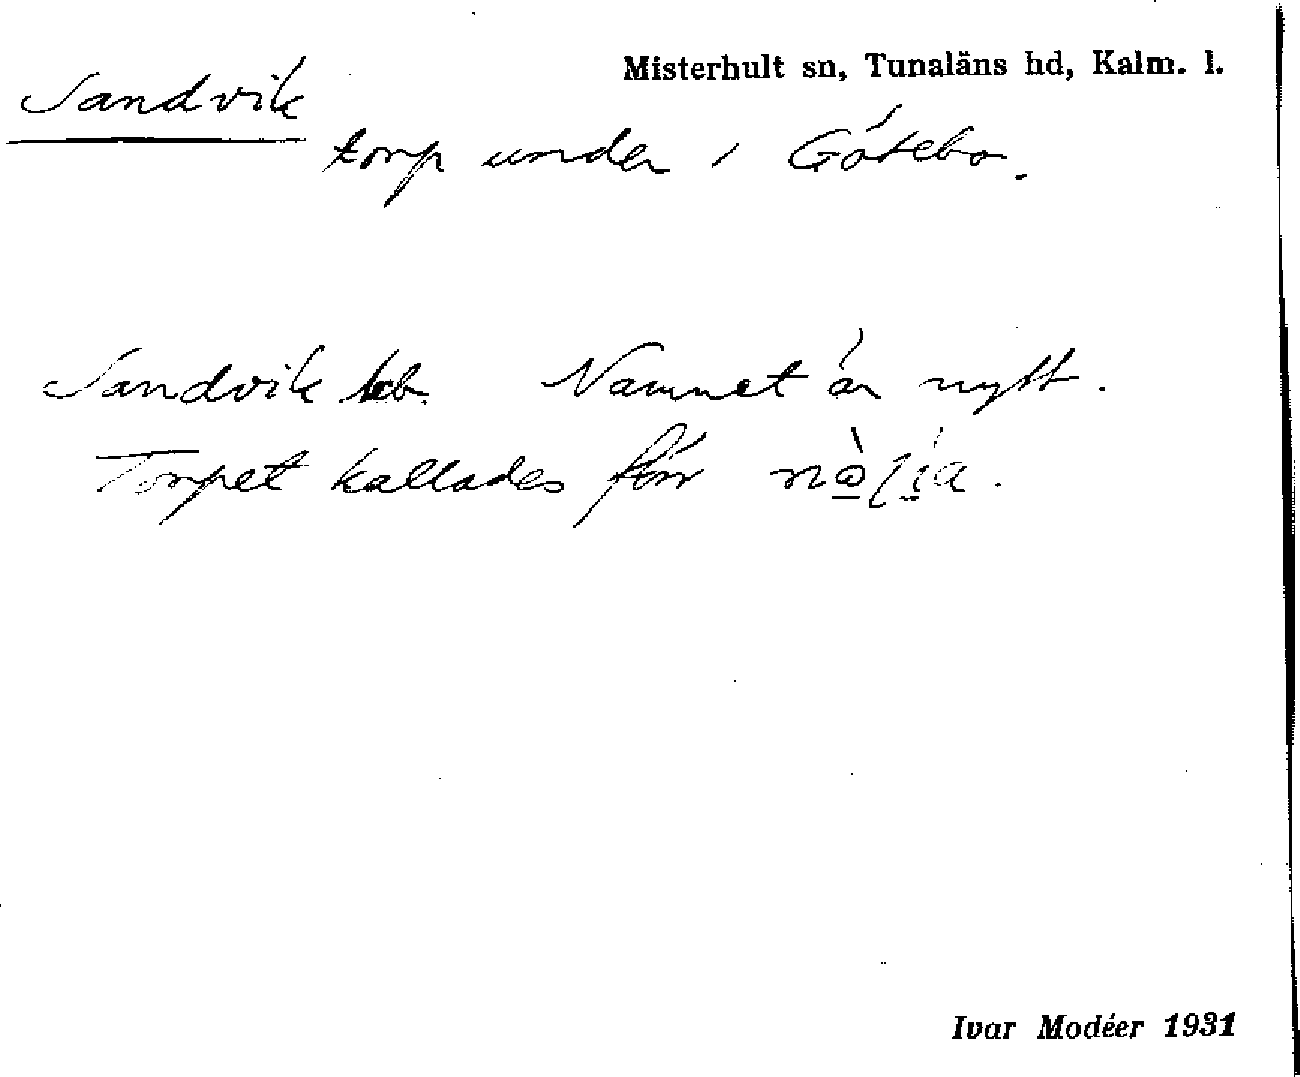 Misterhult sn, Tunaläns hd, Kalm. l.
Sandvik
torp under 1 Götebo.
Sandvik kb. Namnet är nytt.
Torpet kallades förr
Ivar Modéer 1931